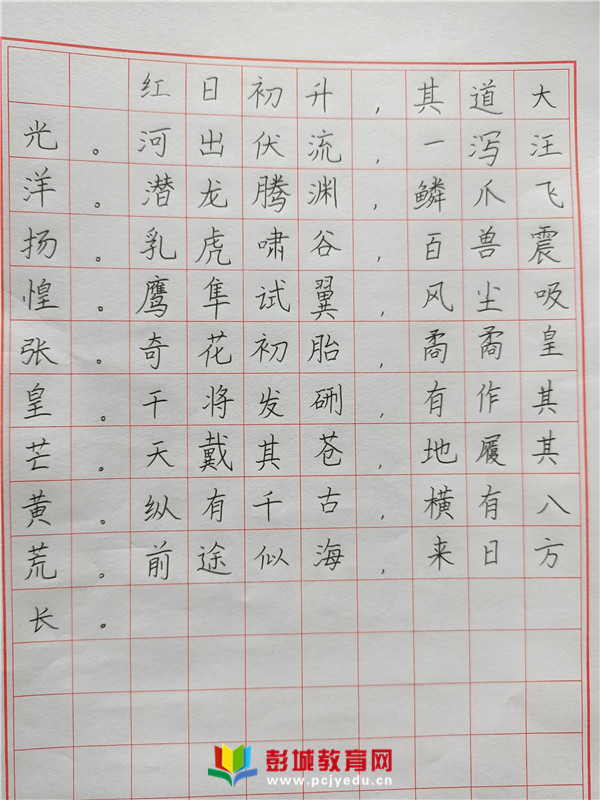 红日初升，其道大
光。河出伏流，一泻汪
洋。潜龙腾渊，鳞爪飞
扬。乳虎啸谷，百兽震
惶。鹰隼试翼，风尘吸
张。奇花初胎，矞矞皇
皇。干将发硎，有作其
芒。天戴其苍，地履其
黄。纵有千古，横有八
荒。前途似海，来日方
长。
彭城教育网
www.pcjyedu.cn